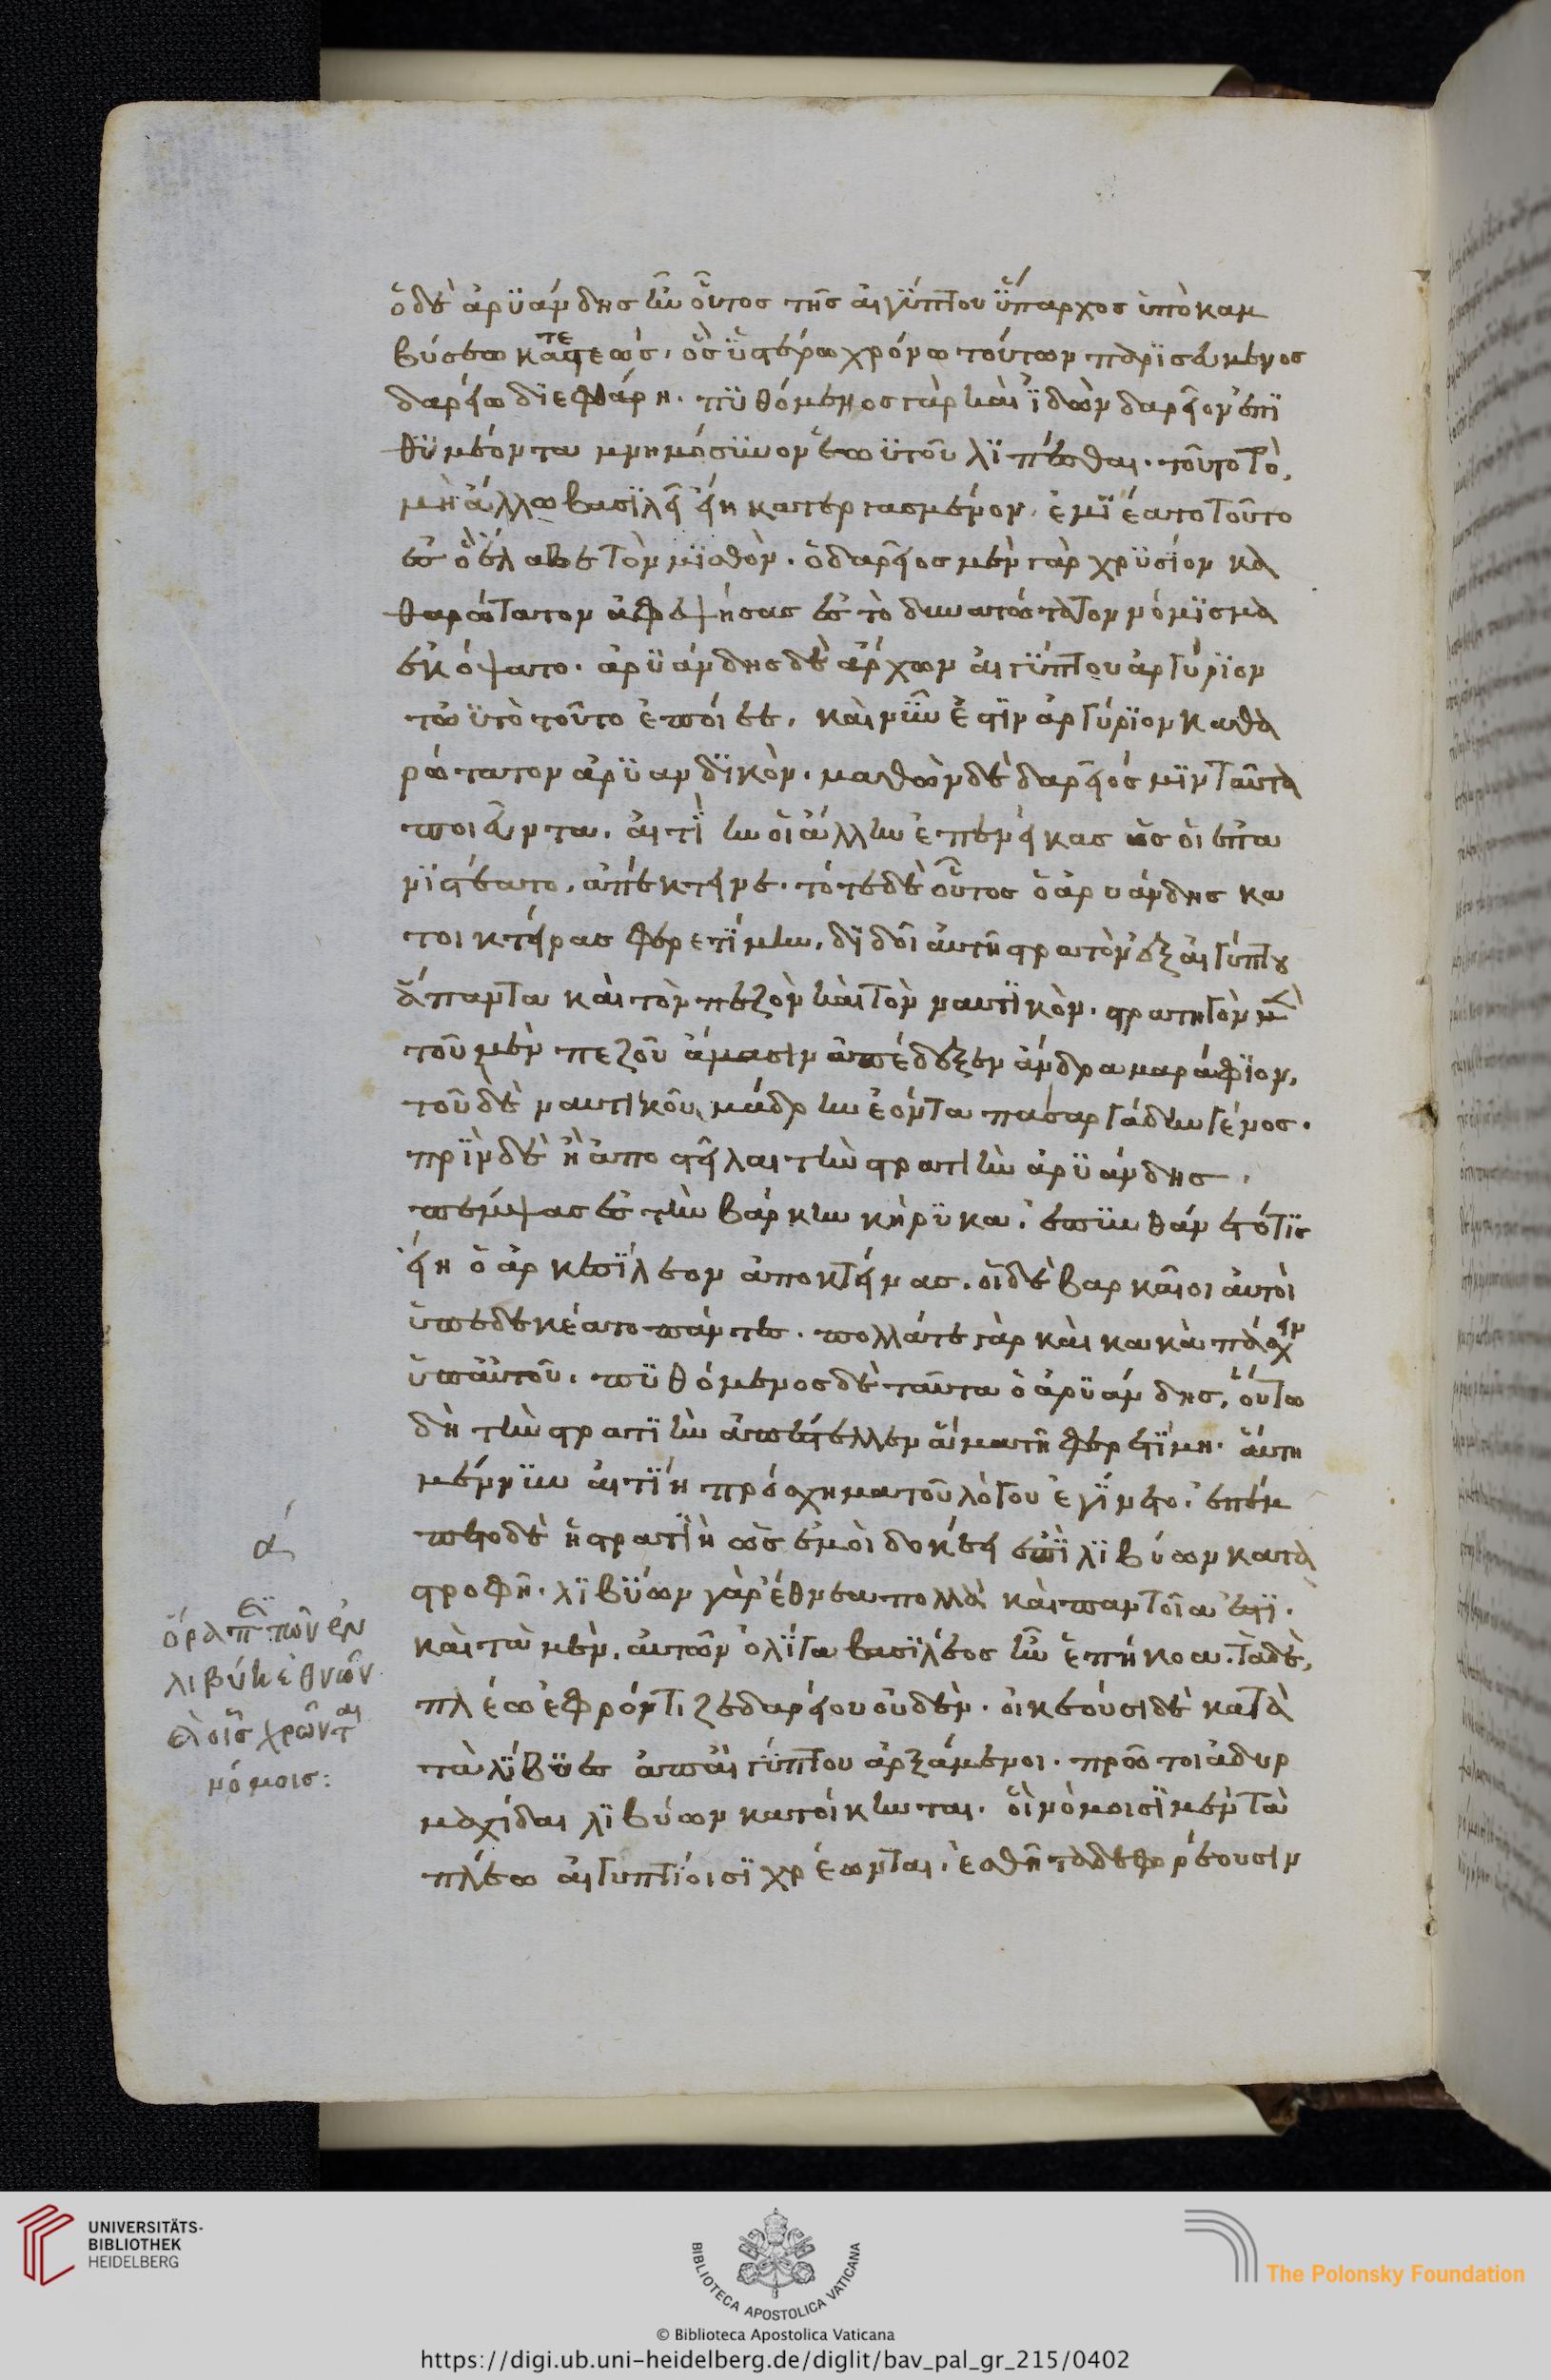 ὁ δὲ ἀρυάνδης ἦν οὗτος τῆς αἰγύπτου ὕπαρχος ὑπὸ καμ
βύσεω κατεστεώς, ὃς ὑστέρω χρόνω τούτων παρισάμενος
δαρείω διεφθάρη. πυθόμενος γὰρ καὶ ἰδὼν δαρεῖον ἐπι
θυμέοντα μνημόσυνον ἑωυτοῦ λιπέσθαι. τοῦτο τὸ,
μὴ ἄλλω βασιλεῖ εἴη κατεργασμένον, ἐμιμέατο τοῦτο
ἐς ὃ ἔλαβε τὸν μισθόν. ὁ δαρεῖος μὲν γὰρ χρυσίον κα
θαρώτατον ἀπεψήσας ἐς τὸ δυνατώτατον νόμισμα
ἐκόψατο. ἀρυάνδης δὲ ἄρχων αἰγύπτου ἀργύριον
τὠυτὸ τοῦτο ἐποίεε, καὶ νῦν ἐστιν ἀργύριον καθα
ρώτατον ἀρυανδικόν. μαθὼν δὲ δαρεῖός μιν ταῦτα
ποιεῦντα, αἰτίην οἱ ἄλλην ἐπενείκας ὥς οἱ ἐπα
νιστέατο, ἀπέκτεινε. τότε δὲ οὗτος ὁ ἀρυάνδης κα
τοικτείρας φερετίμην, διδοῖ αὐτῆ στρατὸν ἐξ αἰγύπτου
ἅπαντα καὶ τὸν πεζὸν καὶ τὸν ναυτικόν. στρατηγὸν μὲν
τοῦ μὲν πεζοῦ ἄμασιν ἀπέδεξεν ἄνδρα μαράφιον,
τοῦ δὲ ναυτικοῦ, μάδρην ἐόντα πασαργάδην γένος.
πρὶν δὲ ἢ ἀποστεῖλαι τὴν στρατιὴν ἀρυάνδης,
πέμψας ἐς τὴν βάρκην κήρυκα, ἐπυνθάνετό τίς
εἴη ὁ ἀρκεσίλεον ἀποκτείνας. οἱ δὲ βαρκαῖοι αὐτοὶ
ὑπεδεκέατο πάντες. πολλά τε γὰρ καὶ κακὰ πάσχειν
ὑπ' αὐτοῦ. πυθόμενος δὲ ταῦτα ὁ ἀρυάνδης, οὕτω
δὴ τὴν στρατιὴν ἀπέστελλεν ἅμα τῆ φερετίμη. αὕτη
μέν νυν αἰτίη πρόσχημα τοῦ λόγου ἐγίνετο, ἐπέμ
πετο δὲ ἡ στρατιὴ ὡς ἐμοὶ δοκέει ἐπὶ λιβύων κατα
στροφῆ. λιβύων γὰρ ἔθνεα πολλὰ καὶ παντοῖα ἐστι.
καὶ τὰ μὲν, αὐτῶν ὀλίγα βασιλέος ἦν ἐπήκοα. τὰ δὲ,
πλέω ἐφρόντιζε δαρείου οὐδέν. οἰκέουσι δὲ κατὰ
τὰ λίβυες ἀπ' αἰγύπτου ἀρξάμενοι. πρῶτοι ἀδυρ
μαχίδαι λιβύων κατοίκηνται. οἳ νόμοισι μὲν τὰ
πλέω αἰγυπτίοισι χρέωνται, ἐσθῆτα δὲ φορέουσιν
α
ὅρα περὶ τῶν ἐν
λιβύη ἐθνῶν
καὶ οἷς χρῶνται
νόμοις:
UNIVERSITÄTS-
BIBLIOTHEK
HEIDELBERG
BIBLIOTECA APOSTOLICA VATICANA
The Polonsky Foundation
© Biblioteca Apostolica Vaticana
https://digi.ub.uni-heidelberg.de/diglit/bav_pal_gr_215/0402